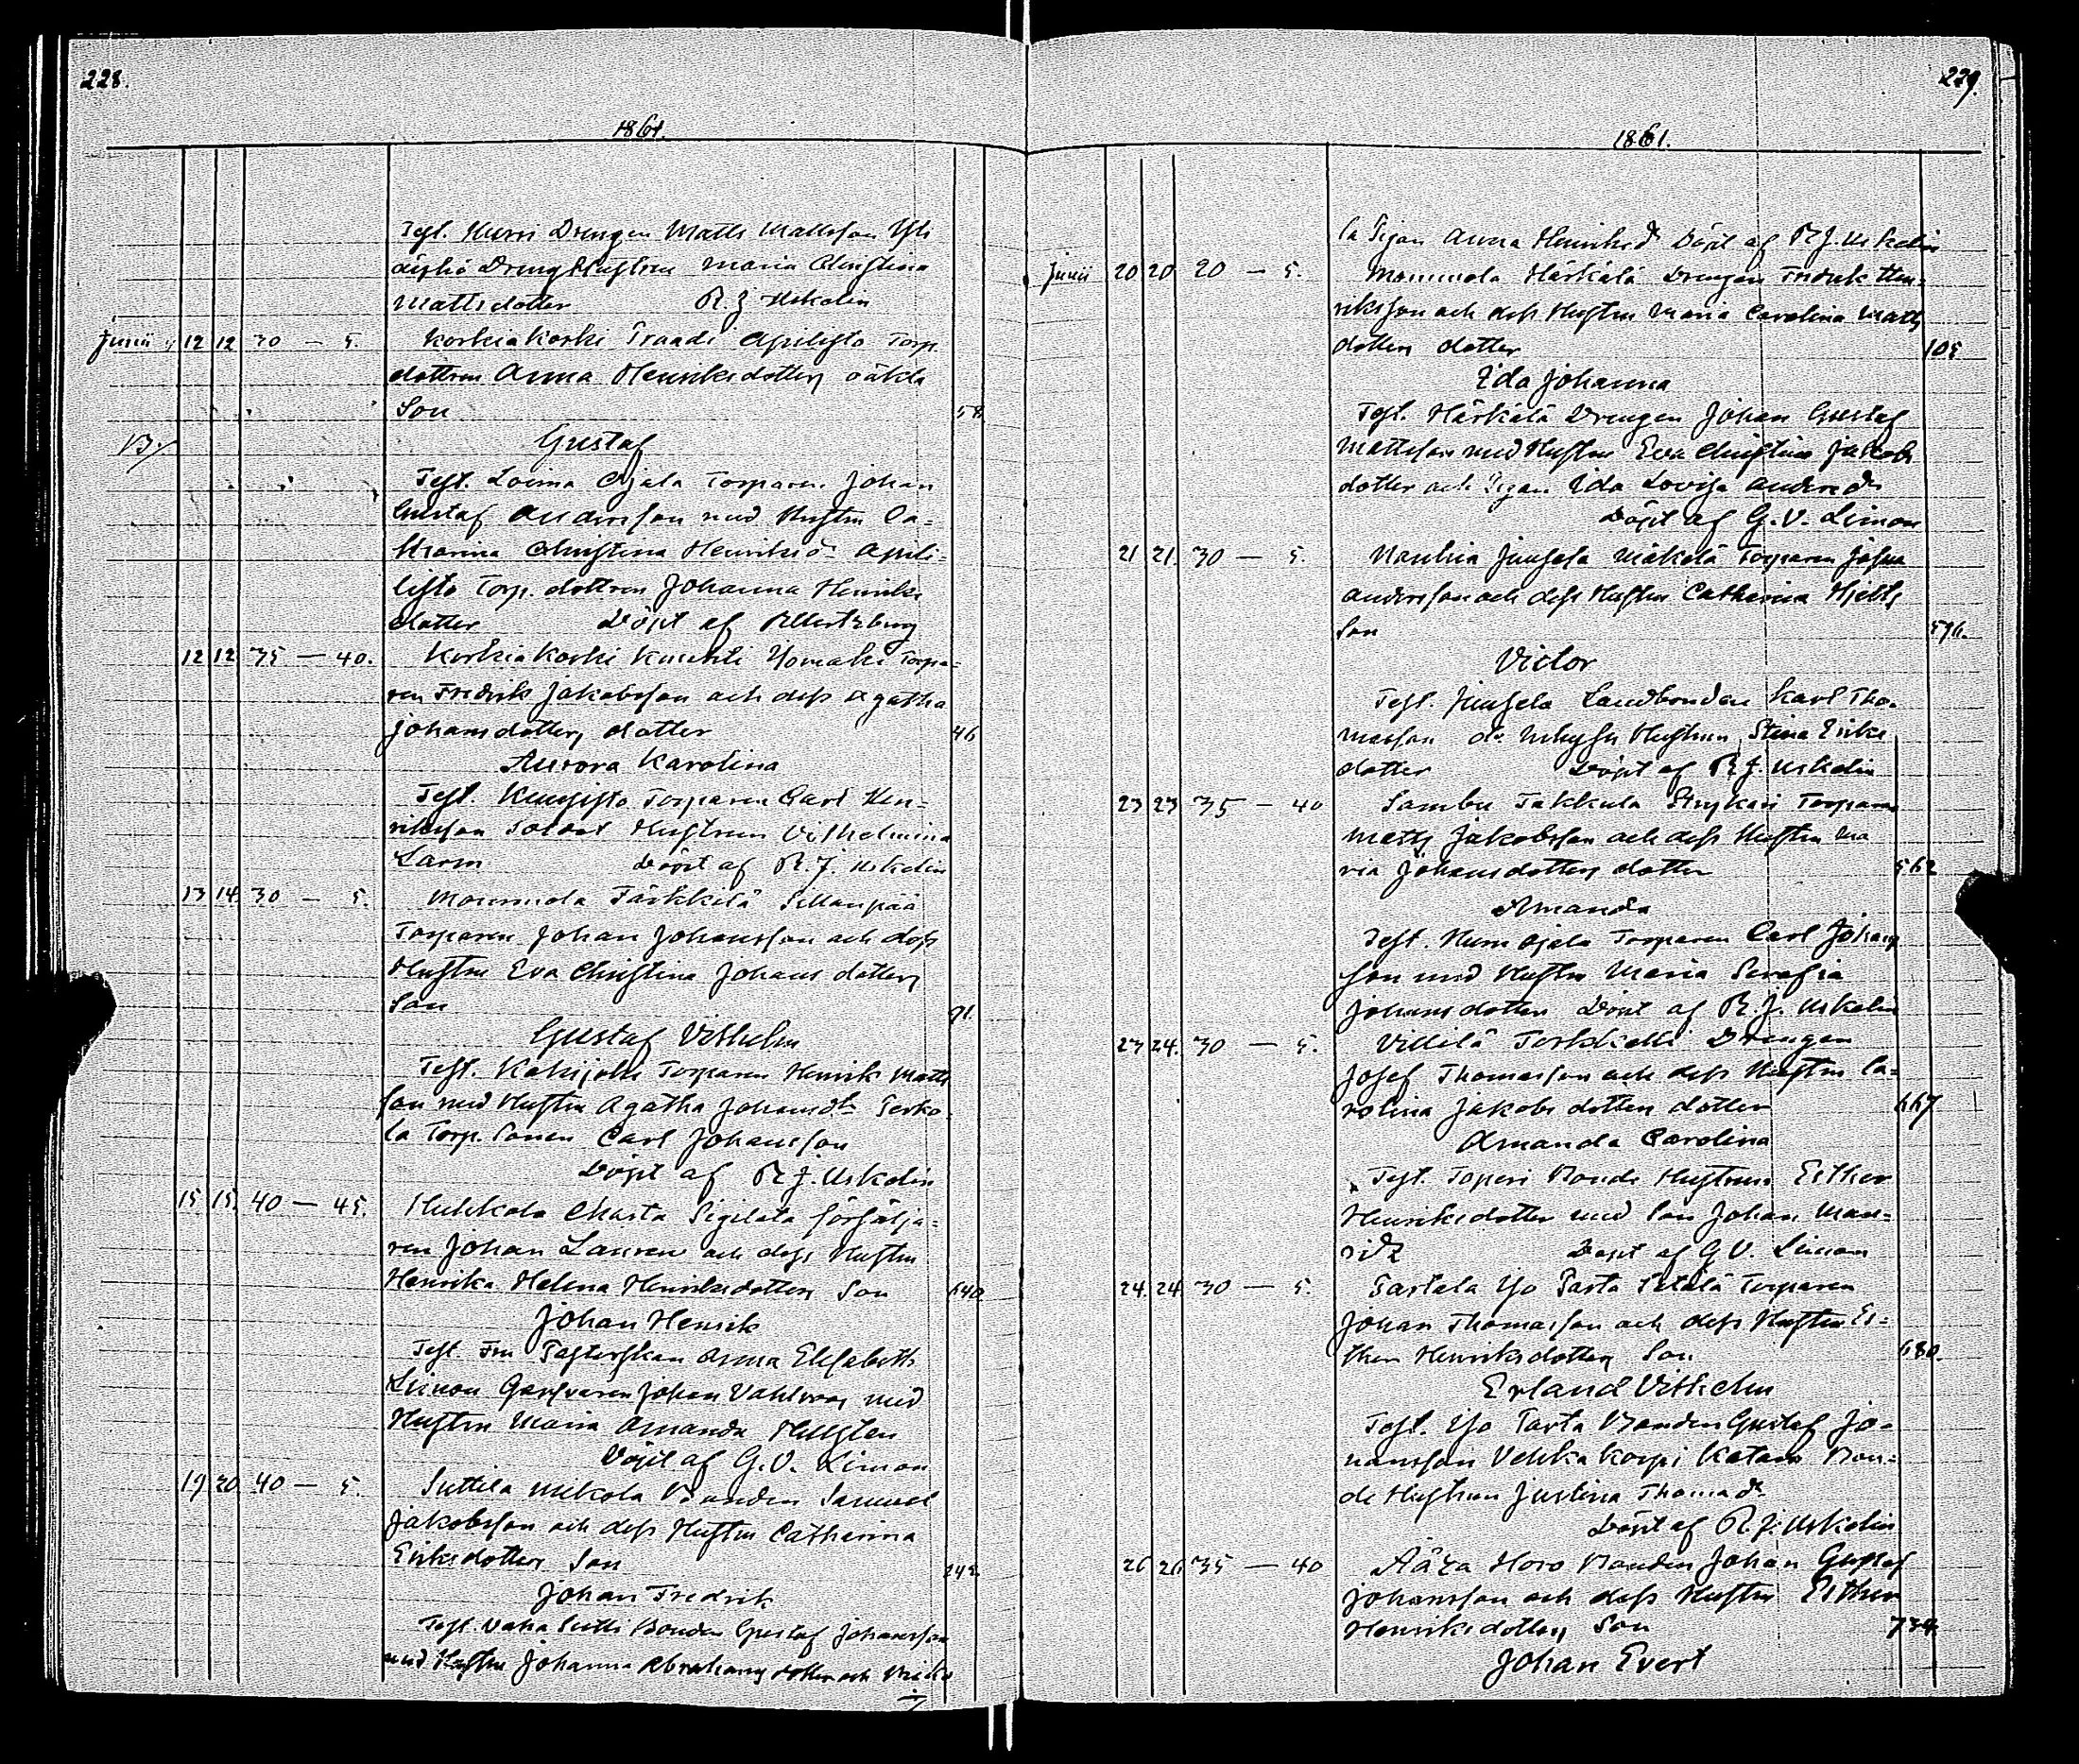 228.
1861.
Test. Hurri Drengen Matts Mattsson Yli
äijhö Dreng Hustrun Maria Christina
Mattsdotter R. J. Uskelin
Junii 12 12 30 — 5. Korkiakoski Traadi Apilisto Torp.
dottren Anna Henriksdotters oäkta
Son 58.
Gustaf
Test. Loima Ojala Torparen Johan
Gustaf Andersson med Hustru Ca=
tharina Christina Henriksd. Apili=
listo Torp. dottren Johanna Henriks
dotter Döpt af
12 12 35 — 40. Korkiakoski Torpa=
ren Fredrik Jakobsson och dess Agatha
Johansdotters dotter 46
Aurora Karolina
Test. Torparen Carl Hen=
riksson Soldat Hustrun Vilhelmina
Larm Döpt af R. J. Uskelin
13 14 30 — 5. Mommola Tärkkilä Sillanpää
Torparen Johan Johansson och dess
Hustru Eva Christina Johans dotters
Son 91.
Gustaf Vilhelm
Test. Kakijoki Torparen Henrik Matts
son med Hustru Agatha Johansdr Perko
la Torp. Sonen Carl Johansson
Döpt af R. J. Uskelin
15. 15. 40 — 45. Huhkola Charta Sigilata försälja=
ren Johan Lauren och dess Hustru
Henrika Helena Henriksdotters Son 640.
Johan Henrik
Test. Fru Pastorskan Anna Elisabeth
Limon Garfvaren Johan Vahlroos med
Hustru Maria Amanda Hellsten
Döpt af G. V. Limon
19 20 40 — 5. Suttila Mikola Bonden Samuel
Jakobsson och dess Hustru Catharina
Eriksdotters Son 245.
Johan Fredrik
Test. Vaha Sutti Bonden Gustaf Johansson
med Hustru Johanna Abrahams dotter och Miko
229.
1861.
la Pigan Anna Henriksd. Döpt af R. J. Uskelin
Junii 20 20 20 — 5. Mommola Härkälä Drengen Fredrik Hen=
riksson och dess Hustru Maria Carolina Matts
dotters dotter 105
Ida Johanna
Test. Härkälä Drengen Johan Gustaf
Mattsson med Hustru Eva Christina Jakobs
dotter och Pigan Ida Lovisa Andersdr
Döpt af G. V. Limon
21 21. 30 — 5. Naukia Junsela Mäkelä Torparen Josua
Andersson och dess Hustru Catharina Hjelts
Son 596.
Victor
Test. Junsela Landbonden Karl Tho=
masson do Hustrun Stina Eriks
dotter Döpt af R. J. Uskelin
23 23 35 — 40 Sambu Takkula Torparen
Matts Jakobsson och dess Hustru Ma
ria Johansdotters dotter 562
Amanda
Test. Hurri Ojala Torparen Carl Johans
son med Hustru Maria Serafia
Johansdotter Döpt af R. J. Uskelin
23 24. 30 — 5. Villilä Torkkelli Drengen
Josef Thomasson och dess Hustru Ca=
rolina Jakobs dotters dotter 667
Amanda Carolina
Test. Toperi Bonde Hustrun Esther
Henriksdotter med Son Johan Mau=
ritz Döpt af G. V. Limon
24. 24. 30 — 5. Tartala Yso Tarta Setälä Torparen
Johan Thomasson och dess Hustru Es=
ther Henriksdotters Son 680.
Erland Vilhelm
Test. Yso Tarta Bonden Gustaf Jo=
hansson Vehkakorpi Katara Bon=
de Hustrun Justina Thomadr
Döpt af R. J. Uskelin
26 26 35 — 40 Horo Bonden Johan Gustaf
Johansson och dess Hustru Esther
Henriksdotters Son 734.
Johan Evert